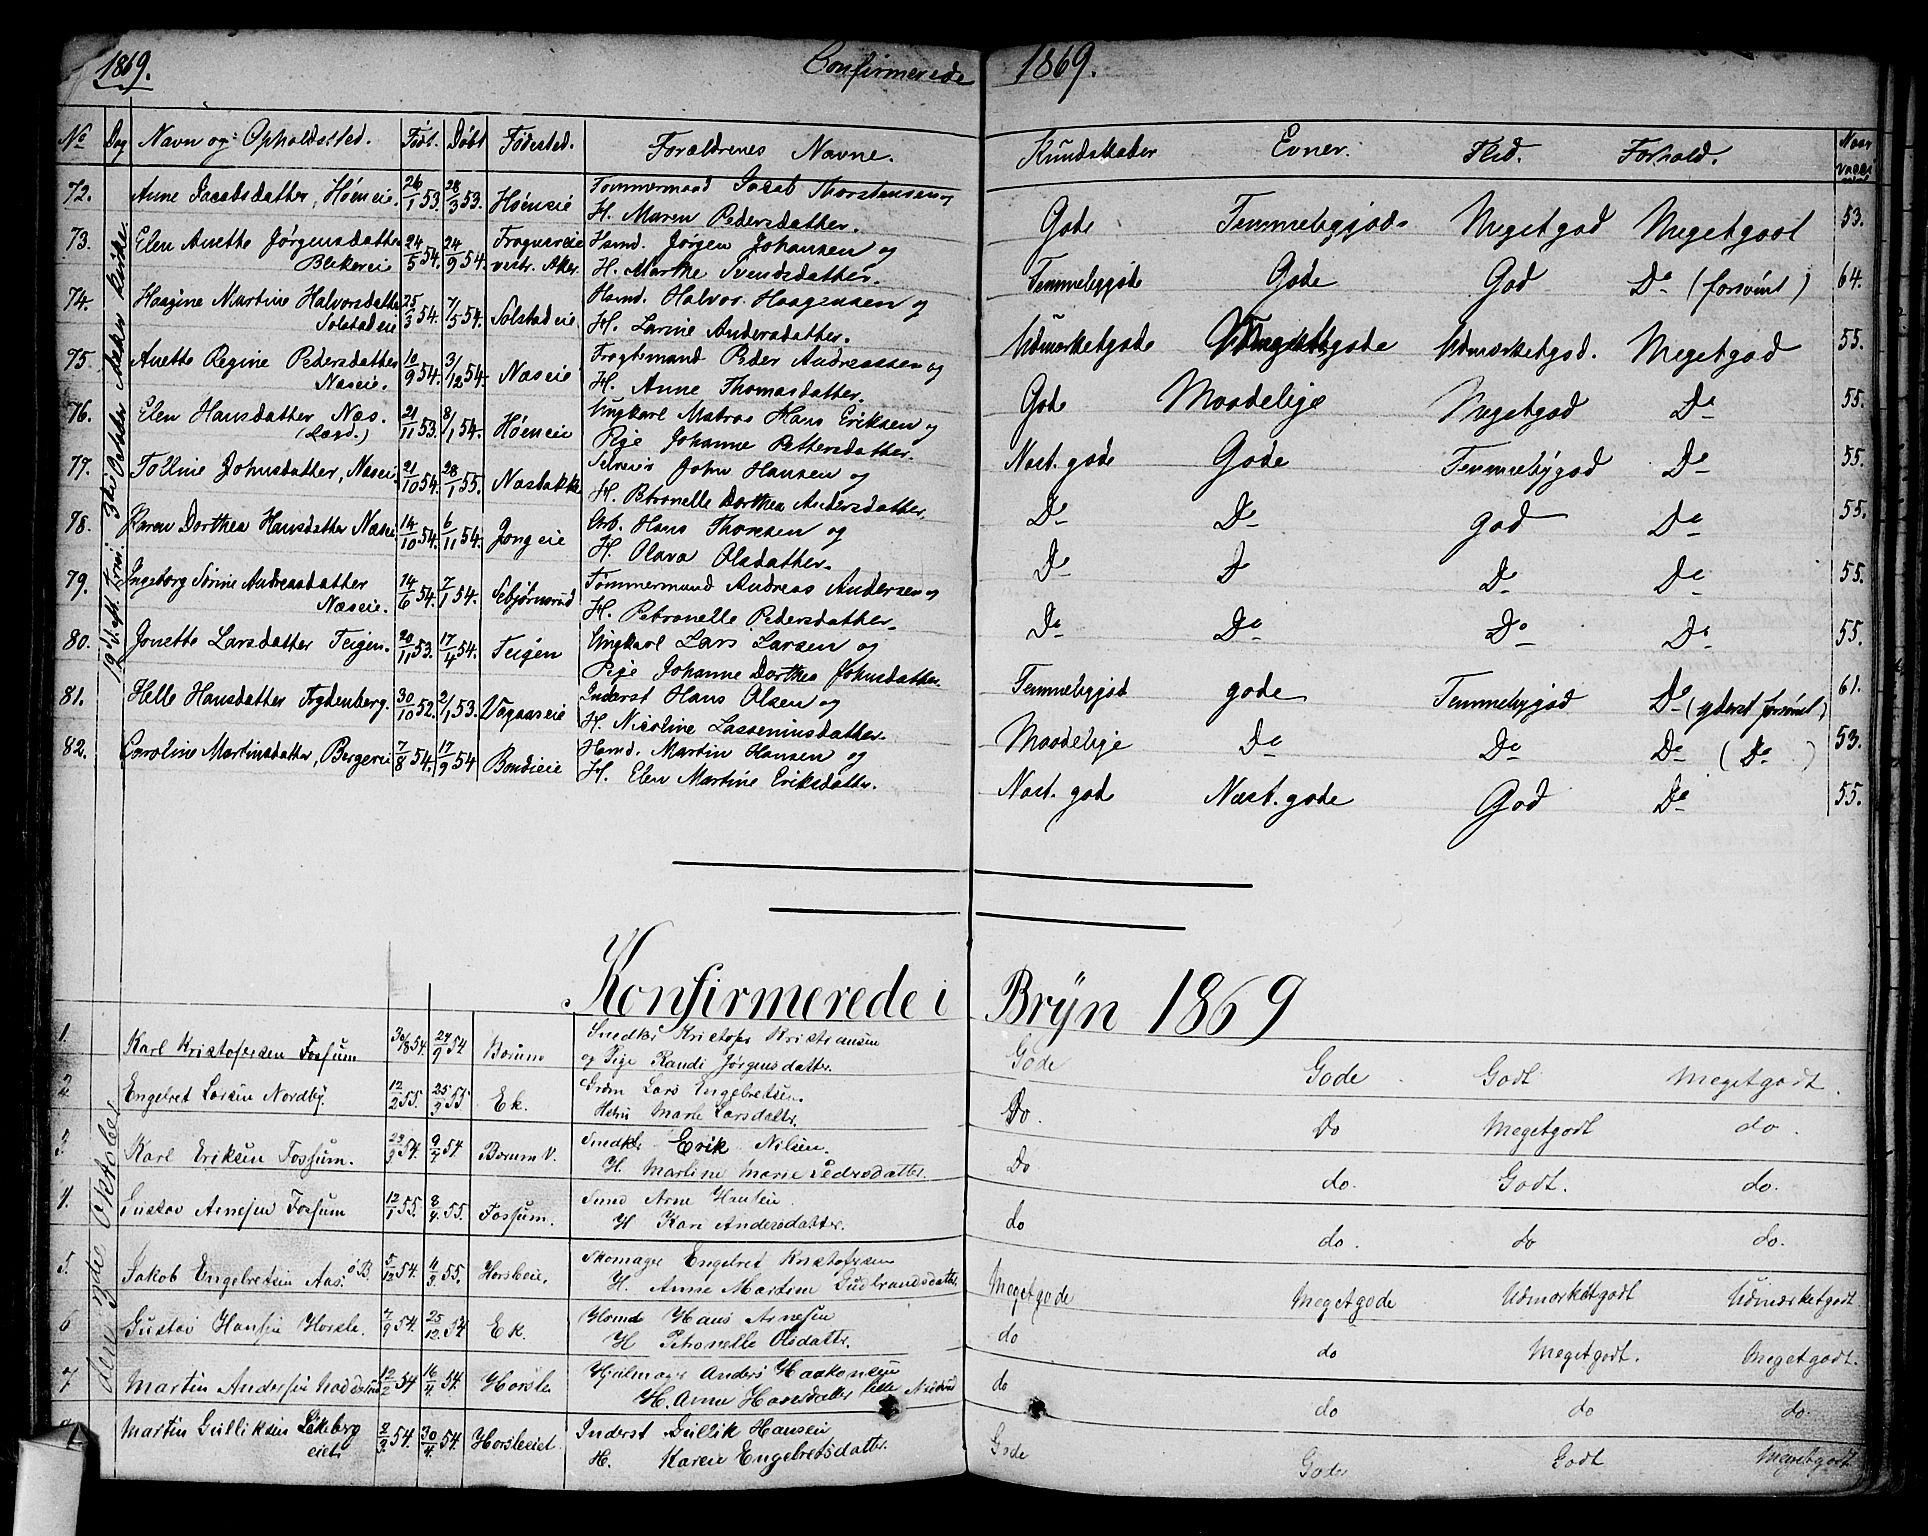 1869.
Confirmerede 1869.
No Dag Navn og Opholdssted. Født. Døbt Fødested. Forældrenes Navne. Kundskaber Evner. Flid. Forhold. Naar vacci
19de S. eft. Trin. Asker Kirke
72. Anne Jacobsdatter, Høneie. 26/1 53. 28/3 53. Høneie Tømmermand Jacob Thorstensen og
H. Maren Pedersdatter. Gode Temmeliggode Megetgod Megetgodt 53.
73. Elen Anette Jørgensdatter 24/5 54. 24/9 54. Frogncreie Husmd. Jørgen Johansen og
Blekereie vestr. Aker. H. Marthe Svendsdatter. Temmeliggode Gode God Do (forsømt) 64.
74. Haagine Martine Halvorsdatter 25/3 54. 7/5 54. Solstadeie. Husmd. Halvor Haagensen og
Solstadeie H. Larine Andersdatter. Udmærketgode Megetgode Udmærketgod. Megetgod 55.
75. Anette Regine Pedersdatter 10/9 54. 3/12 54. Næseie Fragtemand Peder Andreassen og
Næseie. H. Anne Thomasdatter. Gode Maadelige Megetgod Do 55.
76. Elen Hansdatter Næs. 21/11 53. 8/1 54. Høneie Ungkarl Matros Hans Eriksen og
(Lægd.) Pige Johanne Pettersdatter. Næst. gode Gode Temmeliggod Do 55.
77. Tolline Johnsdatter, Næseie 21/10 54. 28/1 55. Næsbakke Selveier John Hansen og
H. Petronelle Dorthea Andersdatter. Do Do God Do 55.
78. Karen Dorthea Hansdatter Næseie 14/10 54. 6/11 54. Jongeie Arb. Hans Thoresen og
H. Olava Olsdatter. Do D Do Do 55.
79. Ingeborg Sørine Andreasdatter 14/6 54. 7/1 54. Sebjørnsrud Tømmermand Andreas Andersen og
Næseie. H. Petronelle Pedersdatter. Do Do Do Do 55.
80. Jonette Larsdatter Teigen. 20/11 53. 17/4 54. Teigen Ungkarl Lars Larsen og
Pige Johanne Dorthea Johnsdatter. Temmeliggod gode Temmeliggod Do (yderst forsømt) 61.
81. Helle Hansdatter Frydenberg. 30/10 52. 2/1 53. Inderst Hans Olsen og
H. Nicoline Lasseniusdatter. Maadelige Do Do Do (Do) 53.
82. Caroline Martinsdatter, Bergereie 7/8 54. 17/9 54 Bondieie Husmd. Martin Hansen og
H. Elen Martine Eriksdatter. Næst. gode Næst. gode God Do 55.
Konfirmerede i Bryn 1869
den 3die Oktober
1. Karl Kristofersen Fossum 30/8 54. 24/9 54 Borum Snedker Kristofer Kristiansen
og Pige Randi Jørgensdatter. Gode Gode Godt Megetgodt.
2. Engebret Larsen Nordby. 12/2 55. 25/3 55 Ek. Grdm Lars Engebretsen.
Marte Larsdatter. Do. Do Megetgodt do.
3. Karl Eriksen Fossum. 54. 9/7 54 Borum V. Snedker Erik Nilsen.
H. Martine Marie Pedersdatter. Do do. Godt. do.
4. Gustav Arnesen Fossum 12/1 55. 8/4 55. Fossum. Smed Arne Hansen.
H Kari Andersdatter. do do. do do.
5. Jakob Engebretsen Aas. ø B. 5/12 54. 4/3 55. Horsleeie. Skomager Engebret Kristofersen
H. Anne Martine Gudbrandsdatter. Megetgode Megetgode Udmærketgodt Udmærketgodt
6 Gustav Hansen Horsle. 7/9 54. 25/12 54 Ek. Husmd Hans Arnesen
H Petronelle Olsdatter. do do Megetgodt. Megetgodt.
7 Martin Andersen Nadderud 12/2 54 16/4 54. Horsle Hjulmager Anders Haakonsen
H. Anne Hansdatter do do do do.
Martin Gulliksen Løkeberg 2/3 54. 30/4 54. Horsleeiet. Inderst Gullik Hansen
eiet. H. Karen Engebretsdatter. Gode Gode Godt Megetgodt